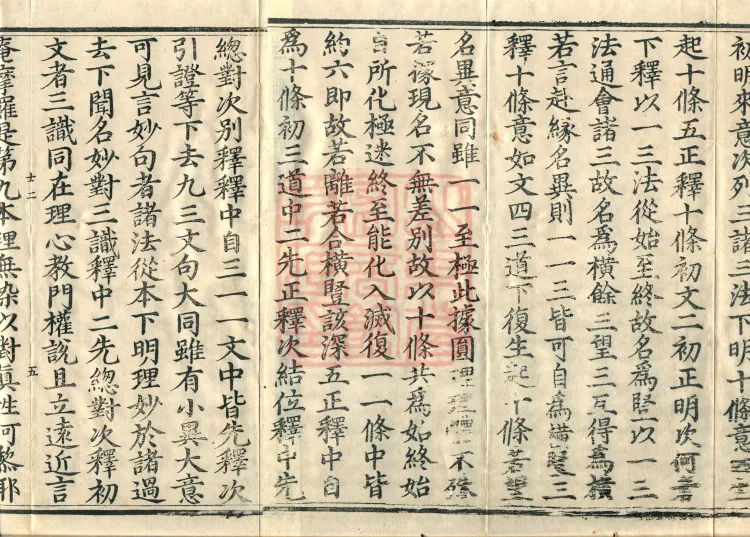 初明來意次列三諸三法下明十條意
起十條五正釋十條初文二初正明次
下釋以一三法從始至終故名爲竪以一三
法通會諸三故名爲橫餘三望三互得爲橫
若言赴緣名異則一一三皆可自爲橫竪三
釋十條意如文四三道下復生起十條若望
名異意同雖一一至極此據圓理不
若據現名不無差別故以十條共爲始終始
自所化極迷終至能化入滅復一一條中皆
約六即故若離若合橫竪該深五正釋中自
爲十條初三道中二先正釋次結位釋中先
總對次別釋釋中自三一一文中皆先釋次
引證等下去九三文句大同雖有小異大意
可見言妙句者諸法從本下明理妙於諸過
去下聞名妙對三識釋中二先總對次釋初
文者三識同在理心教門權說且立遠近言
十二 五
菴摩羅是第九本理無染以對眞性阿黎耶